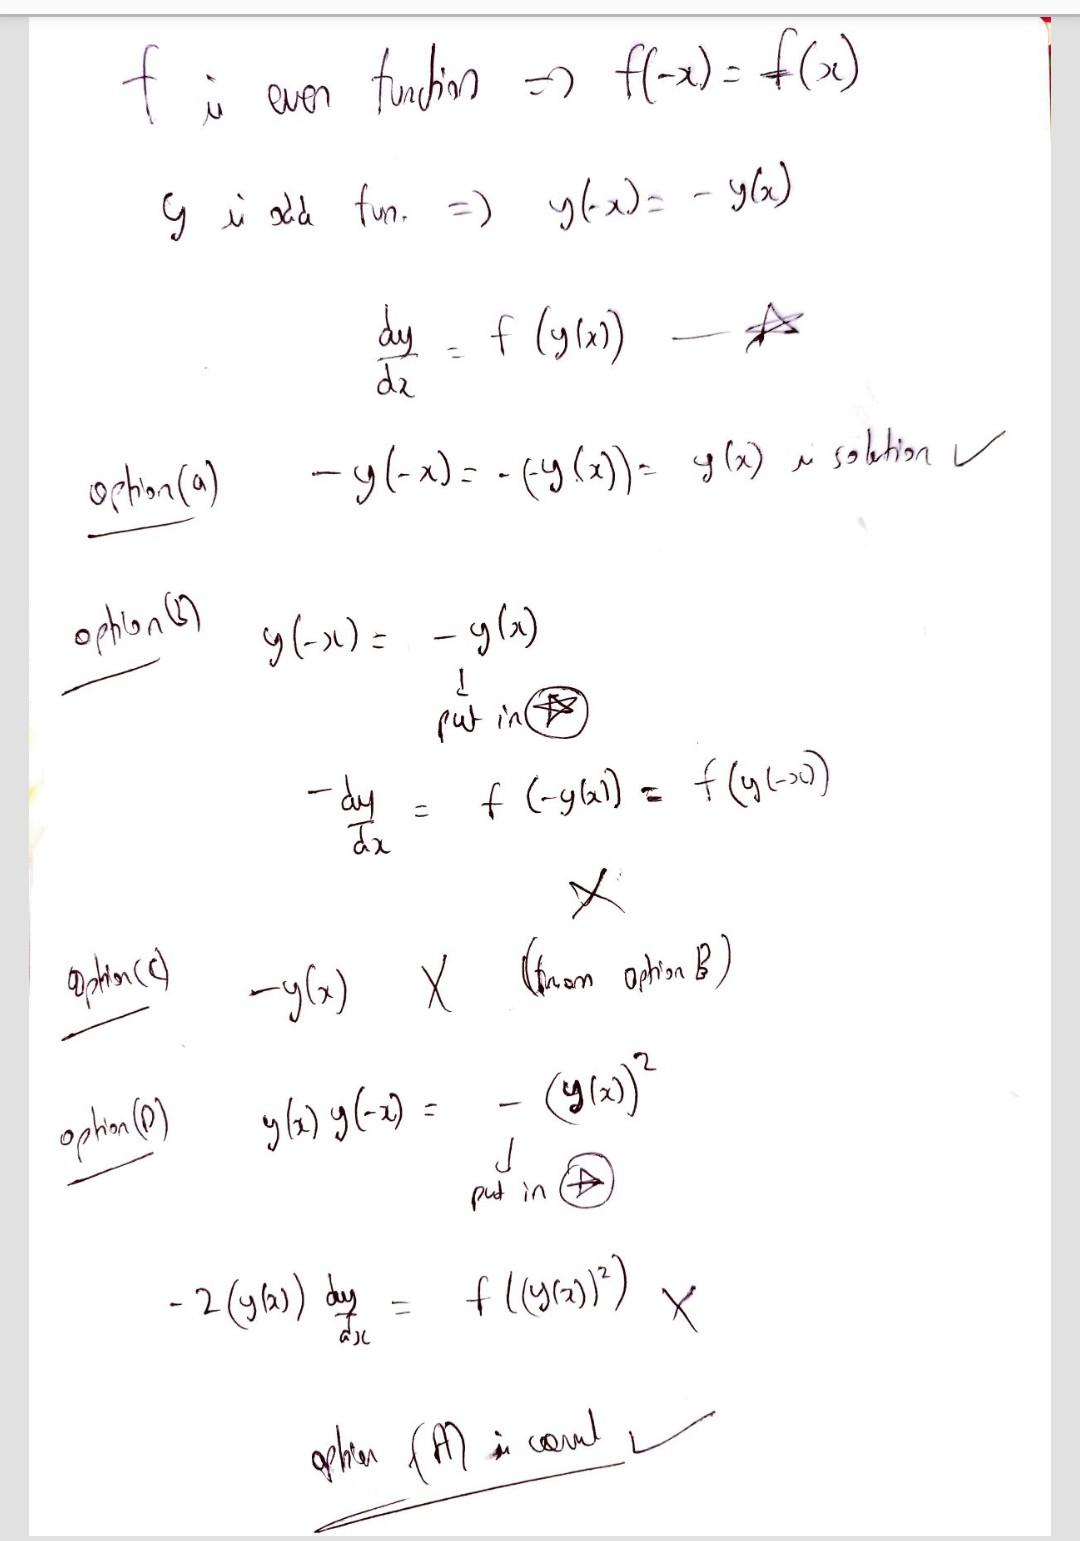 f is even function => f(-x) = f(x)
y is odd fun. => y(-x) = - y(x)
dy/dx = f (y(x)) — ☆
option(a) -y(-x) = -(-y(x)) = y(x) is solution ✓
option(B) y(-x) = - y(x)
↓
put in ☆
-dy/dx = f (-y(x)) = f(y(-x))
X
option(C) -y(x) X (from option B)
option(D) y(x) y(-x) = - (y(x))²
↓
put in ☆
- 2(y(x)) dy/dx = f((y(x))²) X
option (A) is correct ✓